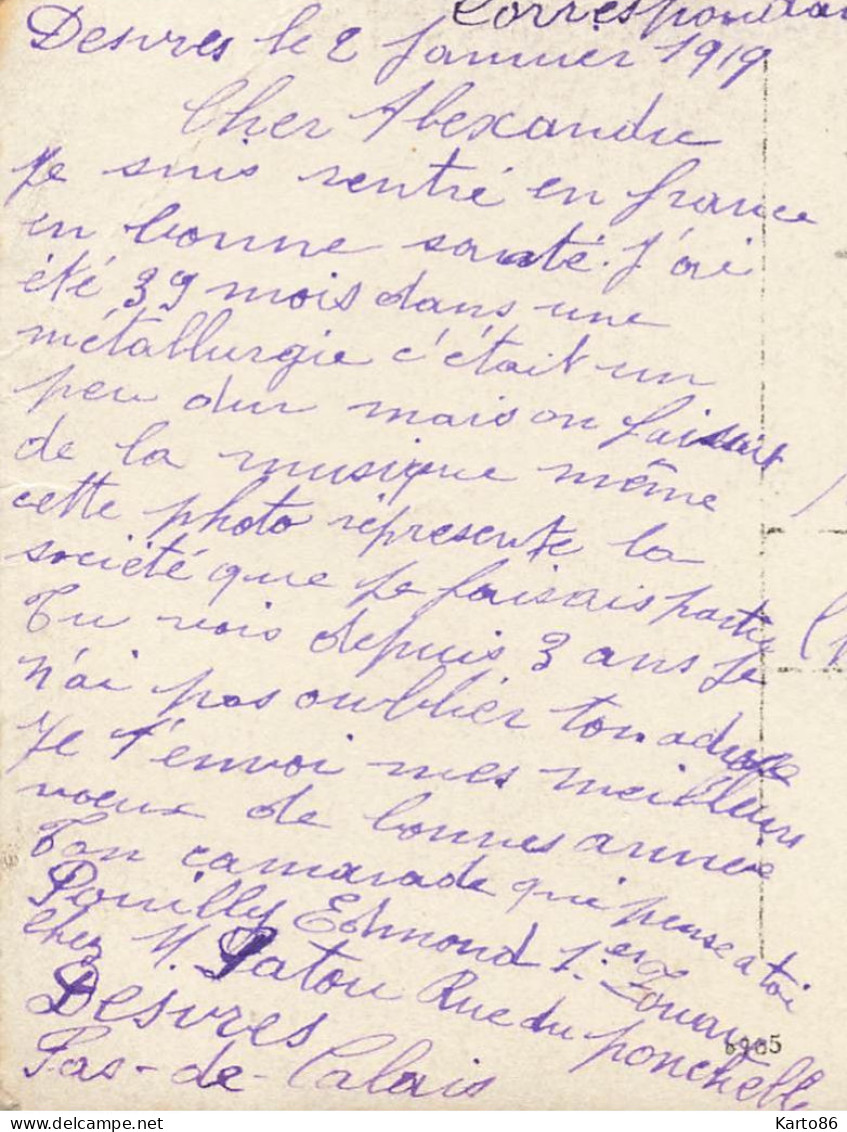 Correspondan
Desvres le 2 Janvier 1919
Cher Alexandre
Je suis rentré en france
en bonne santé. J'ai
été 39 mois dans une
métallurgie c'était un
peu dur mais on faisait
de la musique même
cette photo représente la
société que je faisais partie
Tu vois depuis 3 ans je
n'ai pas oublier ton adresse
Je t'envoi mes meilleurs
voeux de bonnes année
Ton camarade qui pense a toi
Pouilly Edmond 1.er Zouaves
Chez M. Patou Rue du ponchelle
Desvres
Pas-de-Calais
delcampe.net
Karto86